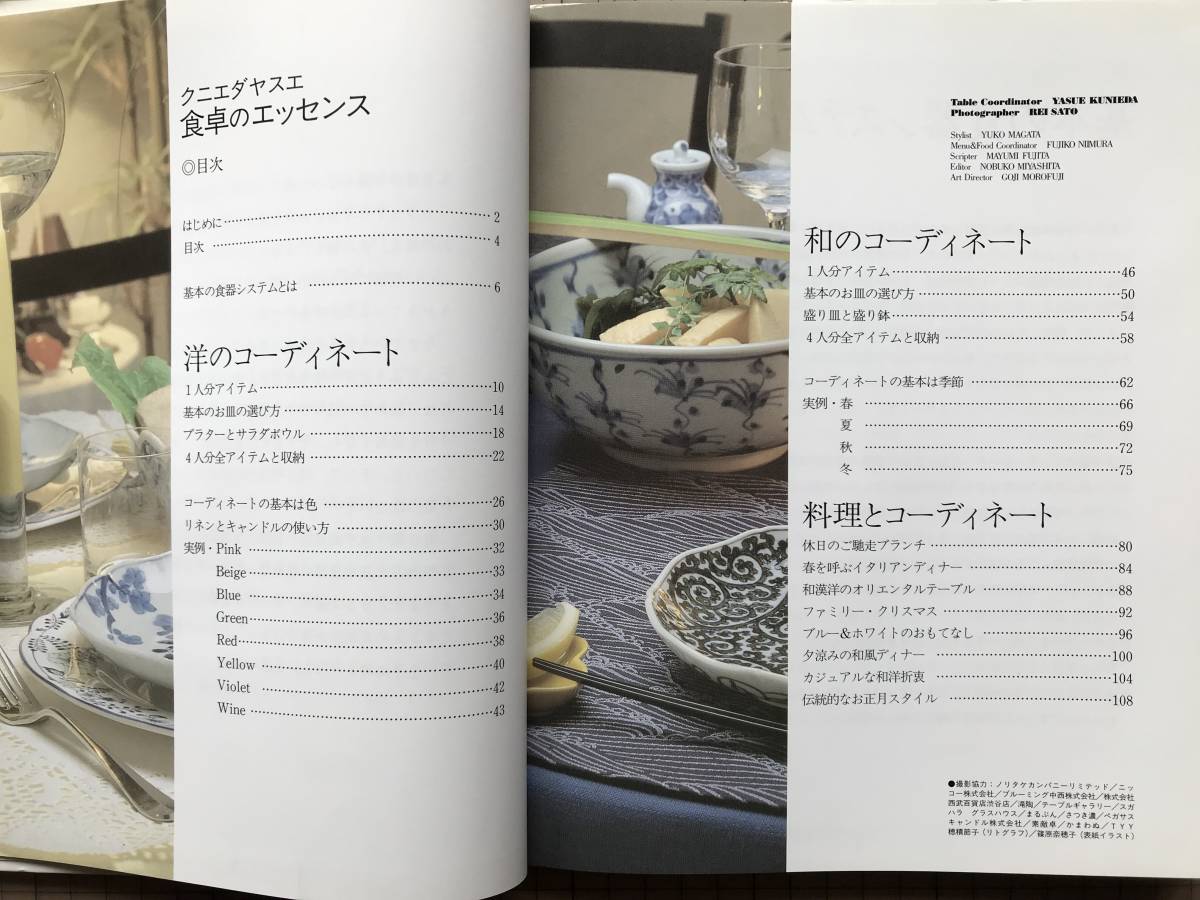 クニエダヤスエ
食卓のエッセンス
◎目次
はじめに 2
目次 4
基本の食器システムとは 6
洋のコーディネート
1人分アイテム 10
基本のお皿の選び方 14
プラターとサラダボウル 18
4人分全アイテムと収納 22
コーディネートの基本は色 26
リネンとキャンドルの使い方 30
実例・Pink 32
Beige 33
Blue 34
Green 36
Red 38
Yellow 40
Violet 42
Wine 43
Table Coordinator YASUE KUNIEDA
Photographer REI SATO
Stylist YUKO MAGATA
Menu&Food Coordinator FUJIKO NIIMURA
Scripter MAYUMI FUJITA
Editor NOBUKO MIYASHITA
Art Director GOJI MOROFUJI
和のコーディネート
1人分アイテム 46
基本のお皿の選び方 50
盛り皿と盛り鉢 54
4人分全アイテムと収納 58
コーディネートの基本は季節 62
実例・春 66
夏 69
秋 72
冬 75
料理とコーディネート
休日のご馳走ブランチ 80
春を呼ぶイタリアンディナー 84
和漢洋のオリエンタルテーブル 88
ファミリー・クリスマス 92
ブルー&ホワイトのおもてなし 96
夕涼みの和風ディナー 100
カジュアルな和洋折衷 104
伝統的なお正月スタイル 108
●撮影協力：ノリタケカンパニーリミテッド／ニッ
コー株式会社／ブルーミング中西株式会社／株式会社
西武百貨店渋谷店／滝陶／テーブルギャラリー／スガ
ハラ グラスハウス／まるぶん／さつき濃／ペガサス
キャンドル株式会社／素敵卓／かまわぬ／TYY
穂積節子（リトグラフ）／篠原奈穂子（表紙イラスト）